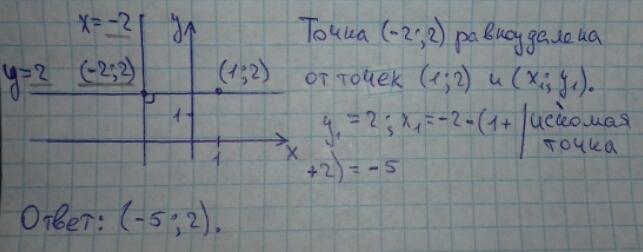 x=-2
y
y=2 (-2;2) (1;2)
1
1
x
Точка (-2;2) равноудалена
от точек (1;2) и (x₁; y₁).
y₁ = 2; x₁ = -2-(1+
+2) = -5
искомая
точка
Ответ: (-5;2).